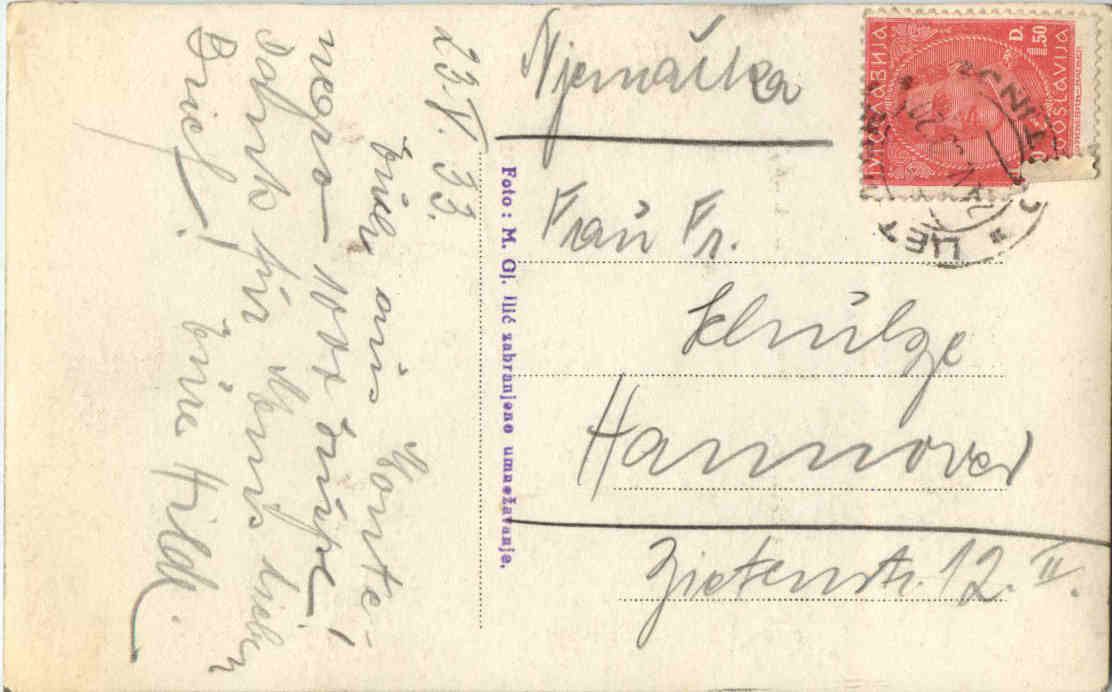 23. V. 33.
Euch aus Monte-
negro 1000 Grüße!
Dank für lieben
Brief! Eure Hilde.
Foto: M. Gj. Ilić zabranjeno umnožavanje.
Njemačka
Frau Fr.
Schulze
Hannover
Zietenstr. 12. II.
D. 1.50